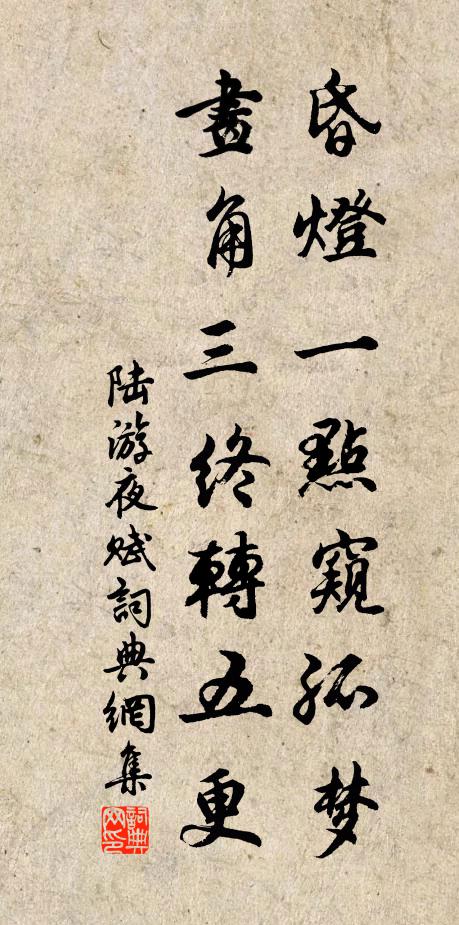 昏燈一點窺孤梦
畫角三终轉五更
陆游夜赋詞典網集
詞典网印